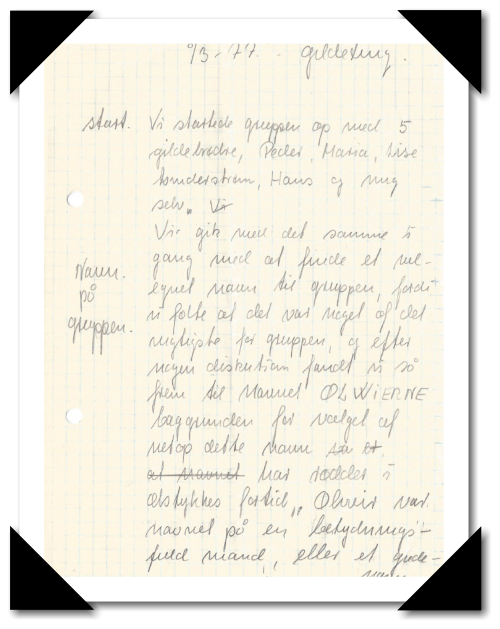 9/3-77. - gildeting.
start. Vi startede gruppen op med 5
gildebrødre, Peder, Maria, Lise
Sønderstrøm, Hans og mig
selv. Vi
Vi gik med det samme i
gang med at finde et vel-
Navn. egnet navn til gruppen, fordi
på vi følte at det var noget af det
gruppen. vigtigste for gruppen, og efter
nogen diskution fandt vi så
frem til navnet OLWIERNE
baggrunden for valget af
netop dette navn
at navnet har rødder i
Ølstykkes fortid,, Olwir var
navnet på en betydnings-
fuld mand, eller et gude-